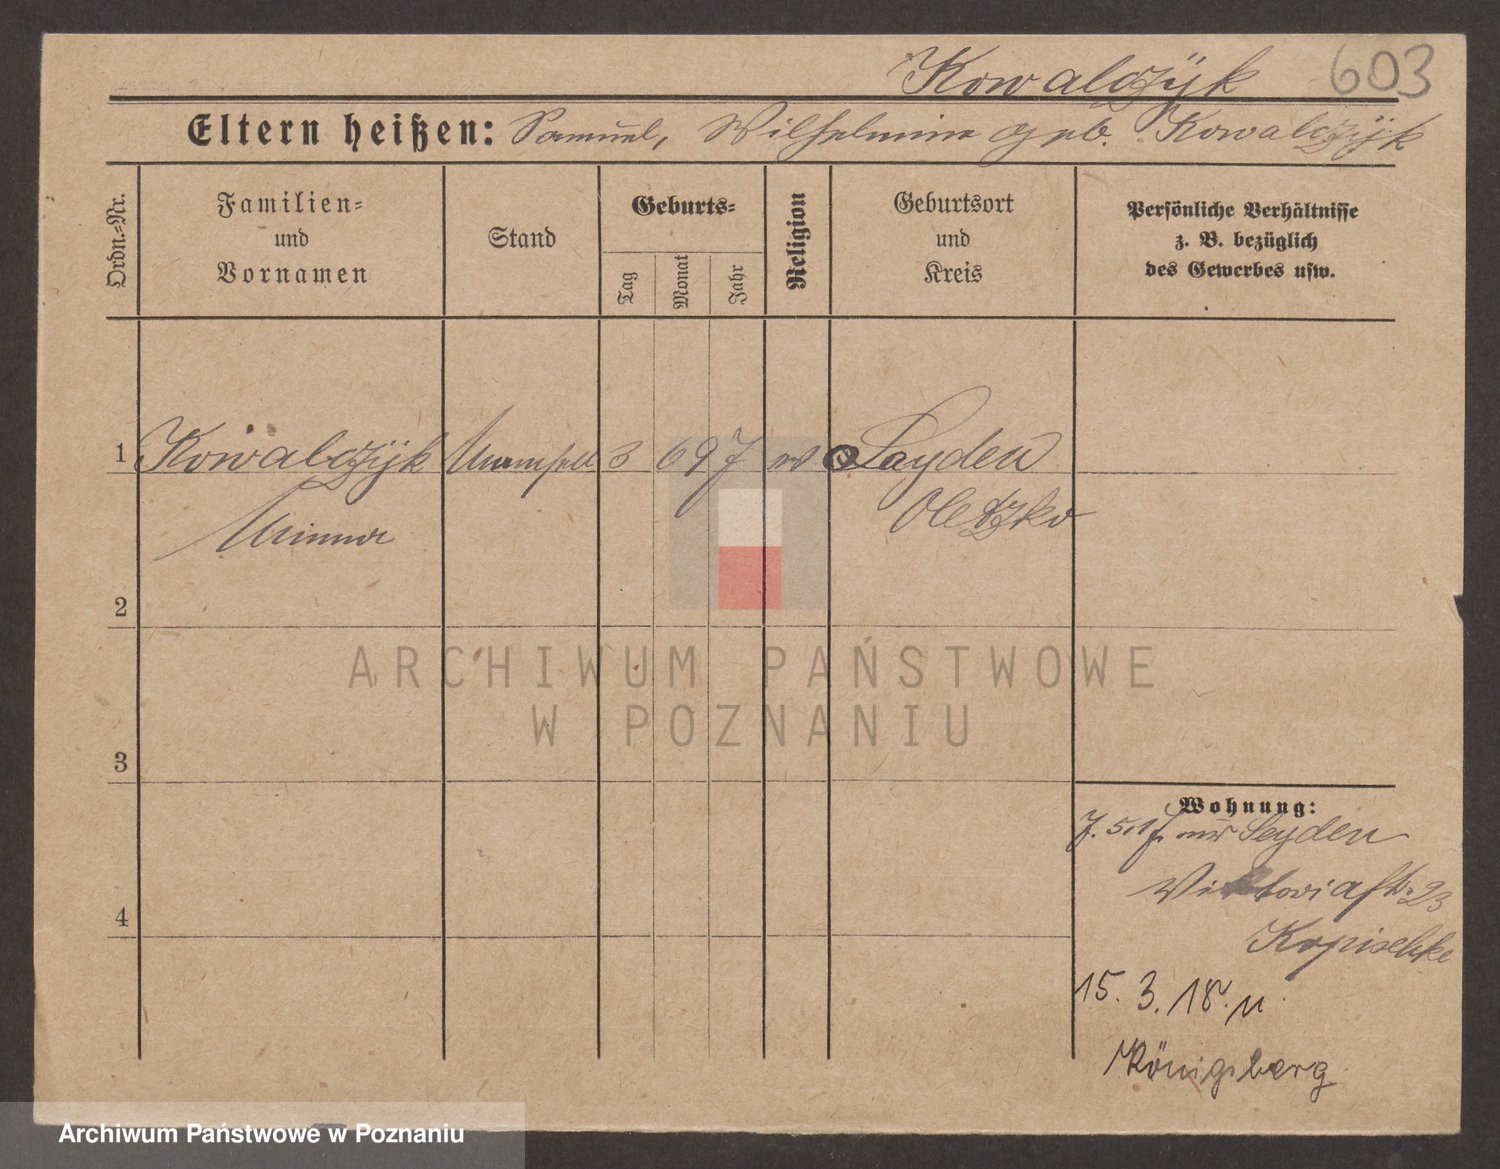 603
Kowalczÿk
Eltern heißen: Samuel, Wilhelmine geb. Kowalczÿk
Ordn.-Nr.
Familien-
und
Vornamen
Stand
Geburts-
Tag
Monat
Jahr
Religion
Geburtsort
und
Kreis
Persönliche Verhältnisse
z. B. bezüglich
des Gewerbes usw.
1 Kowalczÿk Mamsell 3 6 97 Sayden
Minna Oletzko
2
3
4
Wohnung:
7. 5.17. Seyden
Viktoriastr. 23
Kopischke
15. 3. 18. n.
Königsberg
ARCHIWUM PAŃSTWOWE
W POZNANIU
Archiwum Państwowe w Poznaniu